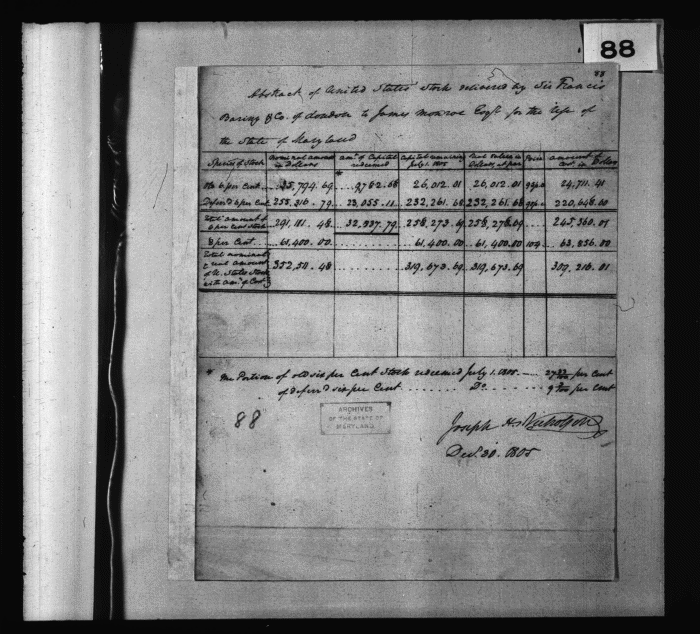 88
88
Abstract of United States Stock delivered by Sir Francis
Baring & Co. of London to James Monroe Esqr. for the use of
the State of Maryland
Species of Stock | nominal amount in Dollars | amt. of Capital redeemed | Capital remaining July 1. 1805 | Real value in Dollars, at par | Price | amount of cost in Dollars
6 per Cent | 35,794.69 | * 9782.68 | 26,012.01 | 26,012.01 | | 24,711.41
Deferr'd 6 per Cent | 255,316.79 | 23,055.11 | 232,261.68 | 232,261.68 | | 220,648.60
Total amount of 6 per Cent Stock | 291,111.48 | 32,837.79 | 258,273.69 | 258,273.69 | | 245,360.01
8 per Cent | 61,400.00 | | 61,400.00 | 61,400.00 | 104 | 63,856.00
Total nominal & real amount of U. States Stock with amt. of Cost | 352,511.48 | | 319,673.69 | 319,673.69 | | 309,216.01
* Portion of old six per Cent Stock redeemed July 1. 1805 per Cent
of deferr'd six per Cent Do. per Cent
88
ARCHIVES
OF THE STATE OF
MARYLAND
Joseph H. Nicholson
Decr. 30. 1805